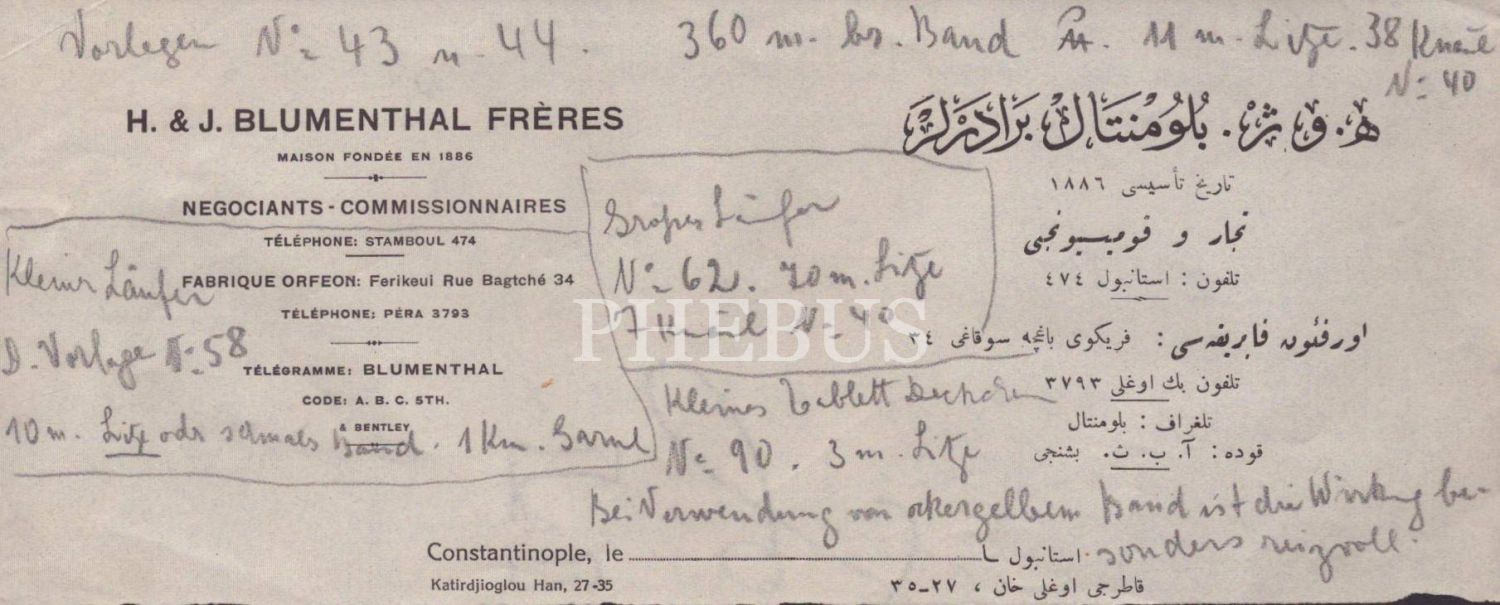 Vorlagen No 43 u. 44. 360 m. br. Band 11 m. Litze. 38 Knäul
No 40
H. & J. BLUMENTHAL FRÈRES
MAISON FONDÉE EN 1886
NEGOCIANTS - COMMISSIONNAIRES
TÉLÉPHONE: STAMBOUL 474
FABRIQUE ORFEON: Ferikeui Rue Bagtché 34
TÉLÉPHONE: PÉRA 3793
TÉLÉGRAMME: BLUMENTHAL
CODE: A. B. C. 5TH.
& BENTLEY
ه. و ژ. بلومنتال برادرلر
تاریخ تأسیسی ١٨٨٦
تجار و قومیسیونجی
تلفون : استانبول ٤٧٤
اورفئون فابریقه سی : فریکوی باغچه سوقاغی ٣٤
تلفون بك اوغلی ٣٧٩٣
تلغراف : بلومنتال
قوده : آ. ب. ث. بشنجی
Kleiner Läufer
D. Vorlage No 58
10 m. Litze oder schmales Band. 1 Kn. Garn
Großer Läufer
No 62. 70 m. Litze
7 Knäul No 40
Kleines Tablett Deckchen
No 90. 3 m. Litze
Bei Verwendung von ockergelbem Band ist die Wirkung be-
sonders reizvoll.
Constantinople, le
استانبول
Katirdjioglou Han, 27-35
قاطرجی اوغلی خان ، ٢٧-٣٥
PHEBUS